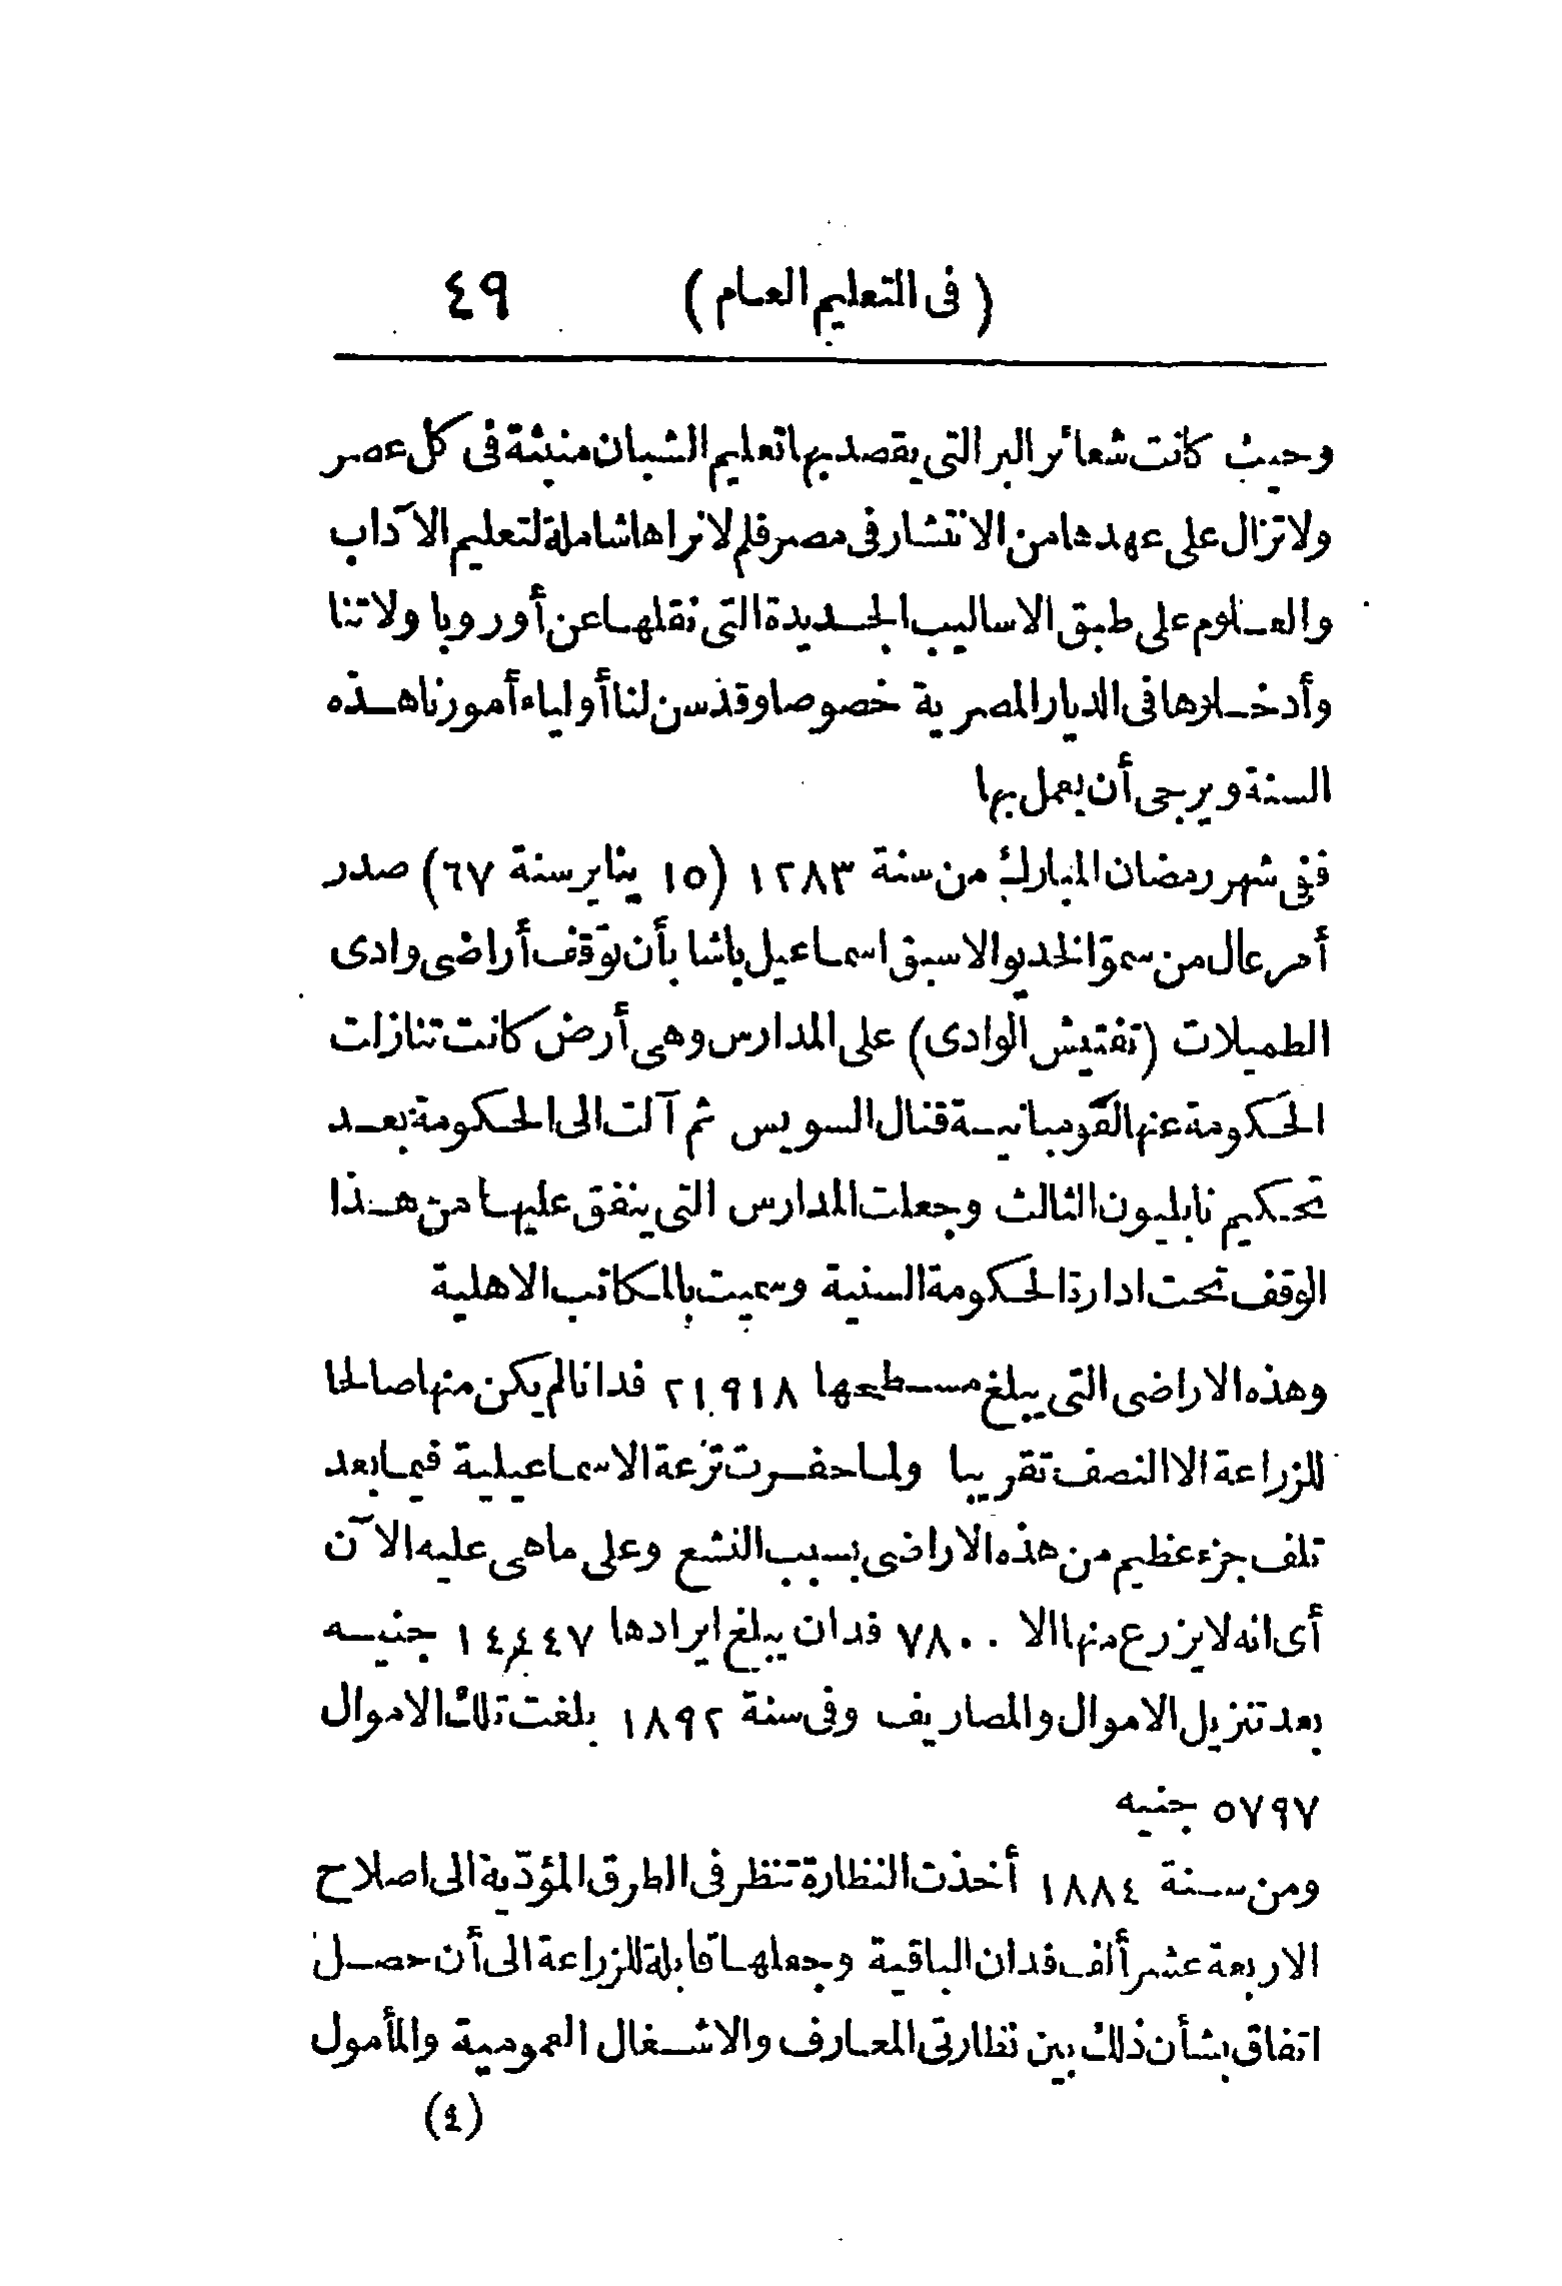 ( فى التعليم العام ) ٤٩
وحيث كانت شعائر البر التى يقصد بها تعليم الشبان منبثة فى كل عصر
ولا تزال على عهدها من الانتشار فى مصر فلم لا نراها شاملة لتعليم الآداب
والعلوم على طبق الاساليب الجديدة التى نقلها عن أوروبا ولاتنا
وأدخلوها فى الديار المصرية خصوصا وقد سن لنا أولياء أمورنا هذه
السنة ويرجى أن يعمل بها
ففى شهر رمضان المبارك من سنة ١٢٨٣ (١٥ يناير سنة ٦٧) صدر
أمر عال من سموّ الخديو الاسبق اسماعيل باشا بأن توقف أراضى وادى
الطميلات (تفتيش الوادى) على المدارس وهى أرض كانت تنازلت
الحكومة عنها القومبانية قنال السويس ثم آلت الى الحكومة بعد
تحكيم نابليون الثالث وجعلت المدارس التى ينفق عليها من هذا
الوقف تحت ادارة الحكومة السنية وسميت بالمكاتب الاهلية
وهذه الاراضى التى يبلغ مسطحها ٢١٩١٨ فدانا لم يكن منها صالحا
للزراعة الا النصف تقريبا ولما حفرت ترعة الاسماعيلية فيما بعد
تلف جزء عظيم من هذه الاراضى بسبب النشع وعلى ماهى عليه الآن
أى انه لا يزرع منها الا ٧٨٠٠ فدان يبلغ ايرادها ١٤٫٤٤٧ جنيه
بعد تنزيل الاموال والمصاريف وفى سنة ١٨٩٢ بلغت تلك الاموال
٥٧٩٧ جنيه
ومن سنة ١٨٨٤ أخذت النظارة تنظر فى الطرق المؤدّية الى اصلاح
الاربعة عشر ألف فدان الباقية وجعلها قابلة للزراعة الى أن حصل
اتفاق بشأن ذلك بين نظارتى المعارف والاشغال العمومية والمأمول
(٤)